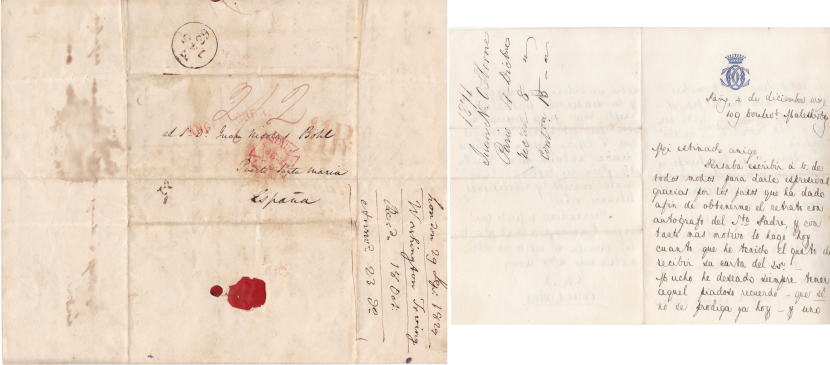 242
al S. D. Juan Nicolas Böhl
Puerto Sta Maria
España
London 29
1829
Washington Irving
18 Oct.
23
1891
Juan N. O'Horne
Paris 4 Dicbre
8
15
4 de diciembre
109 boulevt. Malesherbes
Mi estimado amigo
Pensaba escribir á V. de
todos modos para darle expresivas
gracias por los pasos que ha dado
afin de obtenerme el retrato con
autógrafo del Sto Padre, y con
tanto mas motivo lo hago hoy
cuanto que he tenido el gusto de
recibir su carta del
Mucho he deseado siempre tener
aquel piadoso recuerdo – que
no se prodiga ya hoy – y uno